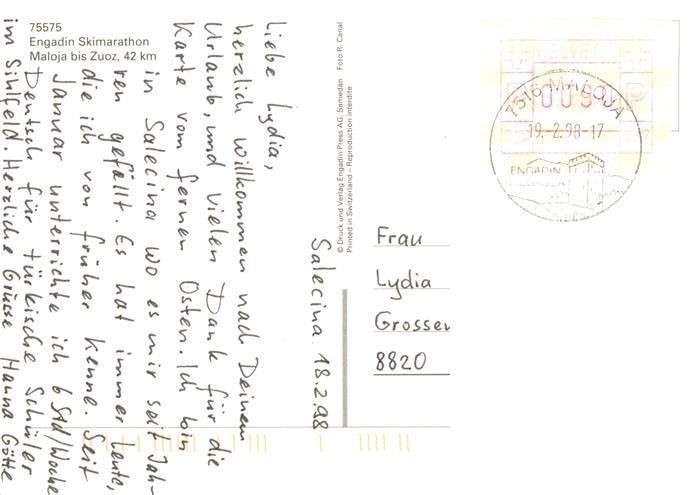 75575
Engadin Skimarathon
Maloja bis Zuoz, 42 km
© Druck und Verlag Engadin Press AG, Samedan Foto R. Canal
Printed in Switzerland – Reproduction interdite
Salecina 18.2.98
Liebe Lydia,
herzlich willkommen nach Deinem
Urlaub, und vielen Dank für die
Karte vom fernen Osten. Ich bin
in Salecina wo es mir seit Jah-
ren gefällt. Es hat immer Leute,
die ich von früher kenne. Seit
Januar unterrichte ich 6 Std/Woche
Deutsch für türkische Schüler
im Sihlfeld. Herzliche Grüsse Hanna Götte
HELVETIA
009
7516 MALOJA
19.2.98-17
ENGADIN
Frau
Lydia
Grosser
8820